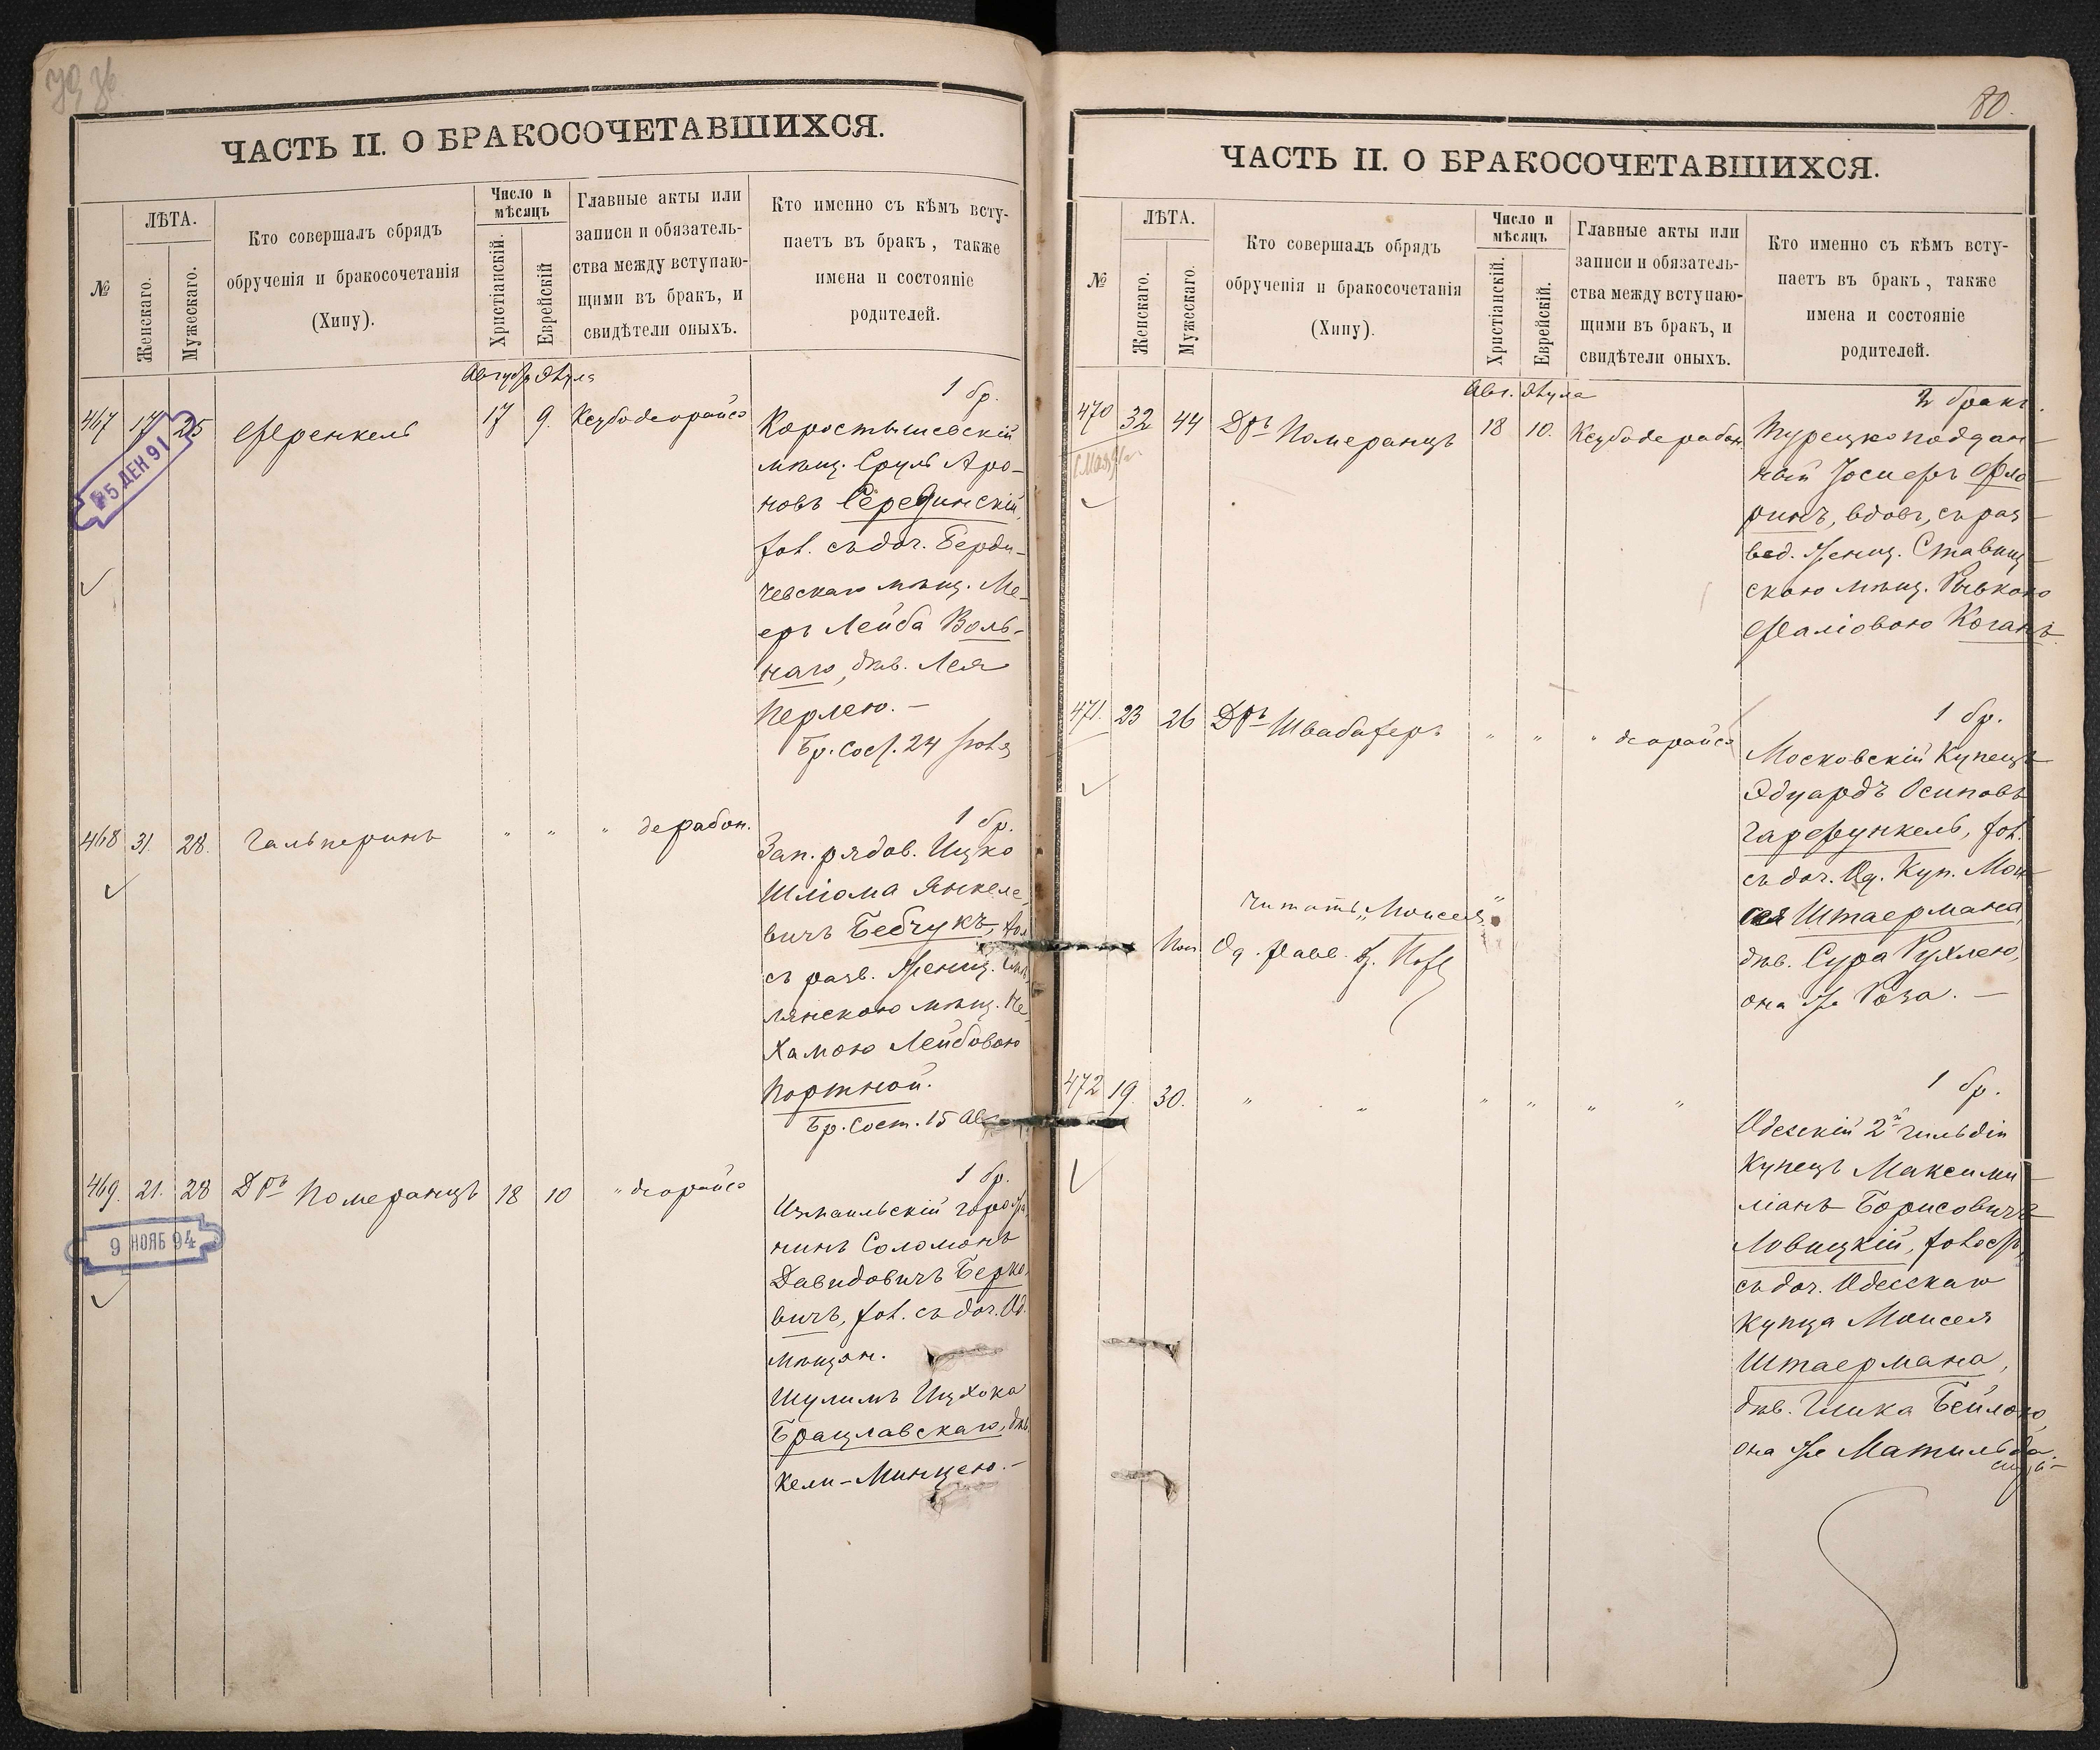 ЧАСТЬ II. О БРАКОСОЧЕТАВШИХСЯ.
№
ЛѢТА.
Женскаго.
Мужескаго.
Кто совершалъ обрядъ
обрученія и бракосочетанія
(Хипу).
Число и
мѣсяцъ
Христіанскій.
Еврейскій
Главные акты или
записи и обязатель-
ства между вступаю-
щими въ бракъ, и
свидѣтели оныхъ.
Кто именно съ кѣмъ всту-
паетъ въ бракъ, также
имена и состояніе
родителей.
467 17 25 Френкель 17 9. Ксубодеорайсо
25 ДЕК 91
1 бр.
Коростышевскій
мѣщ. Сруль Аро-
новъ Серединскій,
хол. съ доч. Берди-
чевскаго мѣщ. Ме-
еръ Лейба Воль-
наго, дѣв. Лея
Перлею. —
Бр. сост. 24
468 31. 28. Гальперинъ " " " дерабон.
1 бр.
Зап. рядов. Ицко
Шлiома Янкеле-
вичъ Бебчукъ, хол
съ разв. женщ.
лянскою мѣщ. Не-
хамою Лейбовою
Портной.
Бр. сост. 15 Ав
469. 21. 28 Дръ Померанцъ 18 10 " деорайсо
9 НОЯБ 94
1 бр.
Измаильскій горожа-
нинъ Соломонъ
Давидовичъ Берко-
вичъ, хол. съ доч. Од.
мѣщан.
Шулимъ Ицхока
Брацлавскаго, дѣв.
Кели-Минцею. —
80.
ЧАСТЬ II. О БРАКОСОЧЕТАВШИХСЯ.
№
ЛѢТА.
Женскаго.
Мужескаго.
Кто совершалъ обрядъ
обрученія и бракосочетанія
(Хипу).
Число и
мѣсяцъ
Христіанскій.
Еврейскій.
Главные акты или
записи и обязатель-
ства между вступаю-
щими въ бракъ, и
свидѣтели оныхъ.
Кто именно съ кѣмъ всту-
паетъ въ бракъ, также
имена и состояніе
родителей.
Авг.
470 32 44 Дръ Померанцъ 18 10. Ксубодерабон.
2 бракъ.
Турецкоподдан-
ный Іосифъ Фло-
ринъ, вдов., съ раз-
вед. женщ. Ставищ-
скою мѣщ. Рывкою
Фаліовою Коганъ
471. 23 26 Дръ Швабахеръ " " " деорайсо
1 бр.
Московскій Купецъ
Эдуардъ Осиповъ
Гарфункель, хол.
съ доч. Од. Куп. Мои-
сея Штаермана,
дѣв. Сура Рухлею,
она же Роза. —
Читать „Моисея"
Од. Равв.
472 19. 30. " " " " " "
1 бр.
Одесскій 2й гильдіи
Купецъ Максими-
ліанъ Борисовичъ
Ловицкій, холост.,
съ доч. Одесскаго
Купца Моисея
Штаермана,
дѣв. Гинка Бейлою,
она же Матильда.